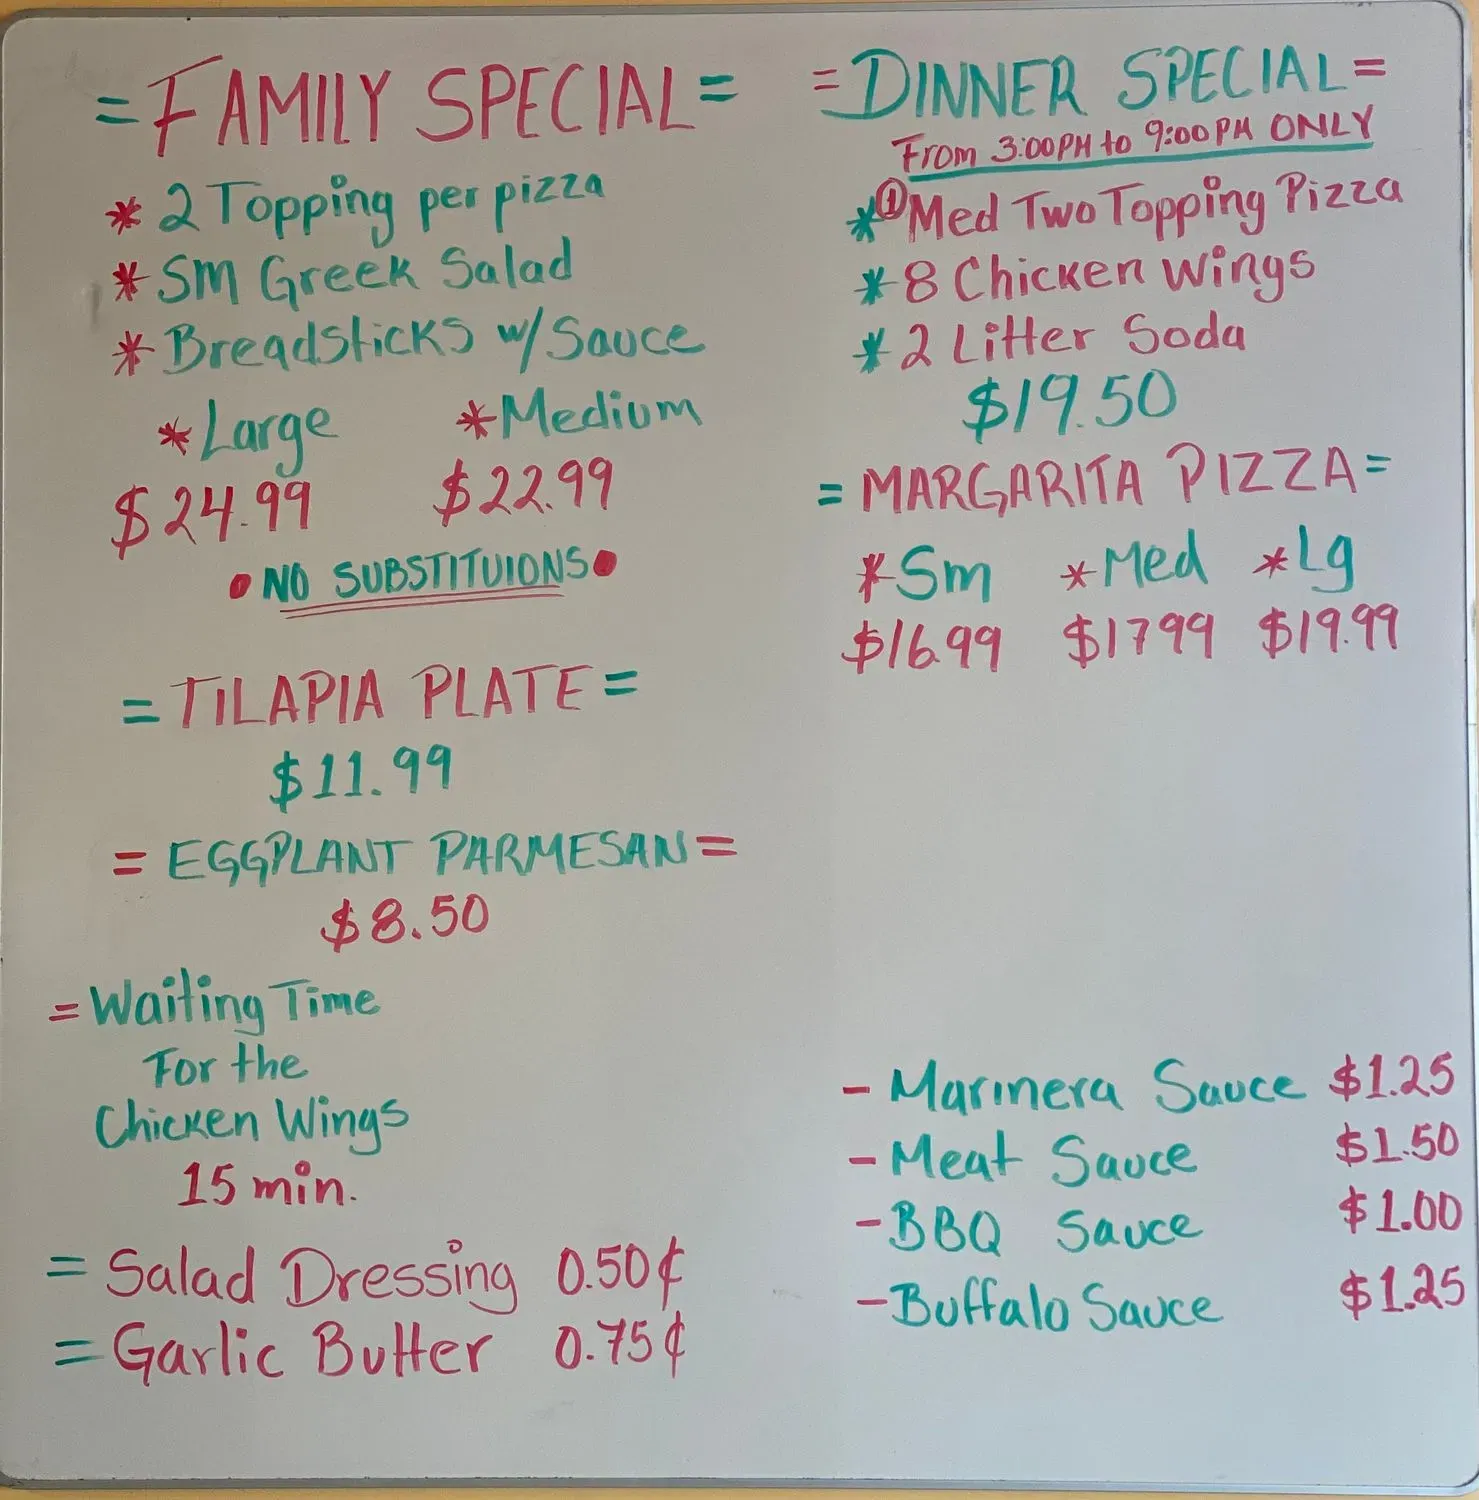 = FAMILY SPECIAL =
* 2 Topping per pizza
* Sm Greek Salad
* Breadsticks w/ Sauce
* Large * Medium
$24.99 $22.99
• NO SUBSTITUIONS •
= TILAPIA PLATE =
$11.99
= EGGPLANT PARMESAN =
$8.50
= Waiting Time
For the
Chicken Wings
15 min.
= Salad Dressing 0.50¢
= Garlic Butter 0.75¢
= DINNER SPECIAL =
From 3:00PM to 9:00PM ONLY
* ① Med Two Topping Pizza
* 8 Chicken Wings
* 2 Litter Soda
$19.50
= MARGARITA PIZZA =
* Sm * Med * Lg
$16.99 $1799 $19.99
- Marinera Sauce $1.25
- Meat Sauce $1.50
- BBQ Sauce $1.00
- Buffalo Sauce $1.25